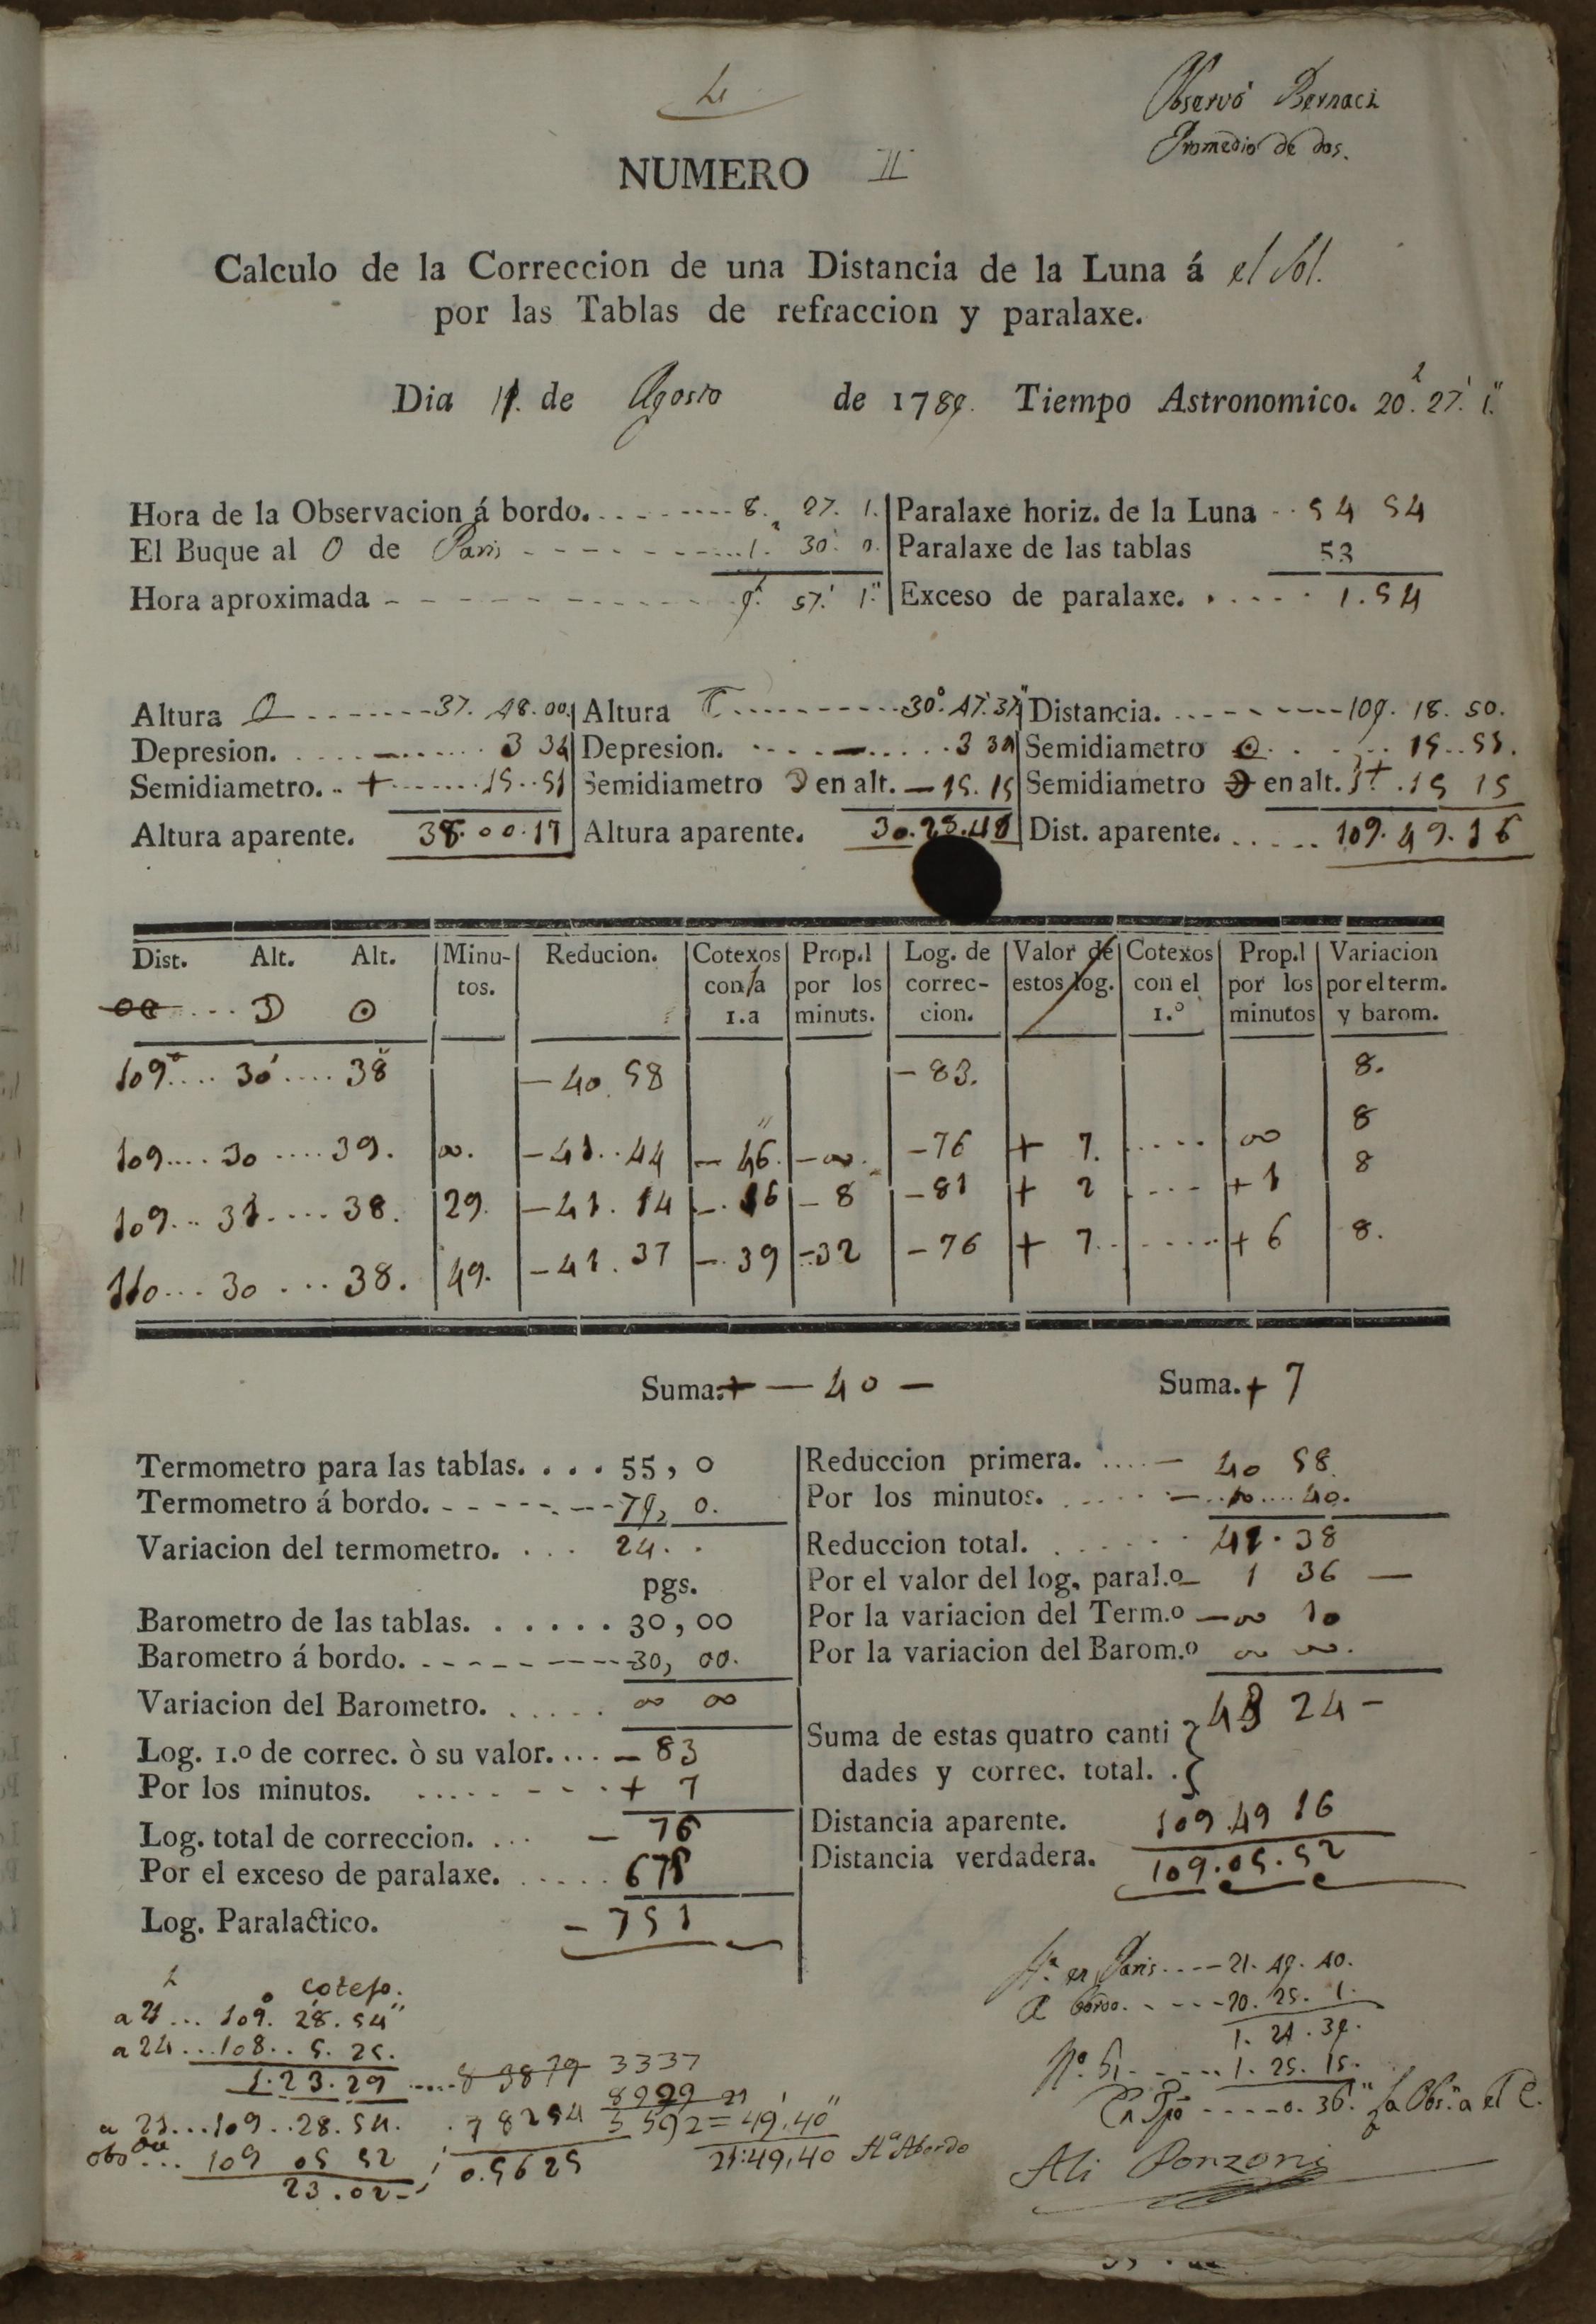 Observó Bernaci
Promedio de dos.
NUMERO II
Calculo de la Correccion de una Distancia de la Luna á el Sol.
por las Tablas de refraccion y paralaxe.
Dia 11. de Agosto de 1789. Tiempo Astronomico. 20.h 27.' 1."
Hora de la Observacion á bordo. 8. 27. 1. Paralaxe horiz. de la Luna 54 54
El Buque al O de Paris 1. 30. 0. Paralaxe de las tablas 53
Hora aproximada 9. 57.' 1." Exceso de paralaxe. 1.54
Altura 37. 48.00. Altura 30°. 47.'37" Distancia. 109. 18. 50.
Depresion. — 3 34 Depresion. — 3 34 Semidiametro ☉ 15..51.
Semidiametro. + 15..51 Semidiametro ☽ en alt. — 15. 15 Semidiametro ☽ en alt. + 15 15
Altura aparente. 38.00.17 Altura aparente. 30.28.48 Dist. aparente. 109. 49. 16
Dist. Alt. Alt. Minu- Reducion. Cotexos Prop.l Log. de Valor de Cotexos Prop.l Variacion
☽ ☉ tos. con la por los correc- estos log. con el por los por el term.
1.a minuts. cion. 1.º minutos y barom.
109.... 30.... 38 — 40 58 — 83. 8.
109.... 30 .... 39. 00. — 41..44 — 46. — 00. — 76 + 7. .... 00 8
109... 31.... 38. 29. — 41. 14 — 16 — 8 — 81 + 2 .... + 1 8
110... 30 ... 38. 49. — 41. 37 — 39 — 32 — 76 + 7. ..... + 6 8.
Suma. — 40 — Suma. + 7
Termometro para las tablas. . . . 55, 0 Reduccion primera. — 40 58.
Termometro á bordo. 79, 0. Por los minutos. — 40.
Variacion del termometro. . . . 24. . Reduccion total. 41. 38
pgs. Por el valor del log. paral.o — 1 36 —
Barometro de las tablas. . . . . . 30,00 Por la variacion del Term.o — 00 10
Barometro á bordo. 30, 00. Por la variacion del Barom.o 00 00.
Variacion del Barometro. . . . . . 00 00 Suma de estas quatro canti 43 24 —
Log. 1.o de correc. ò su valor. . . . — 83 dades y correc. total.
Por los minutos. + 7 Distancia aparente. 109.49 16
Log. total de correccion. . . . — 76 Distancia verdadera. 109.05.52
Por el exceso de paralaxe. 675
Log. Paralactico. — 751
cotejo.
a 21... 109. 28. 54"
a 24...108.. 5. 25.
1.23.29 3337
a 21...109..28.54. .78254 5592=49'.40"
obs 109 05 52 0.5625 21:49,40 Abordo
23.02
H.a en Paris 21. 49. 40.
A bordo. 20. 25. 1.
1. 24. 39.
N.o 51. 1. 25. 15.
0. 36."